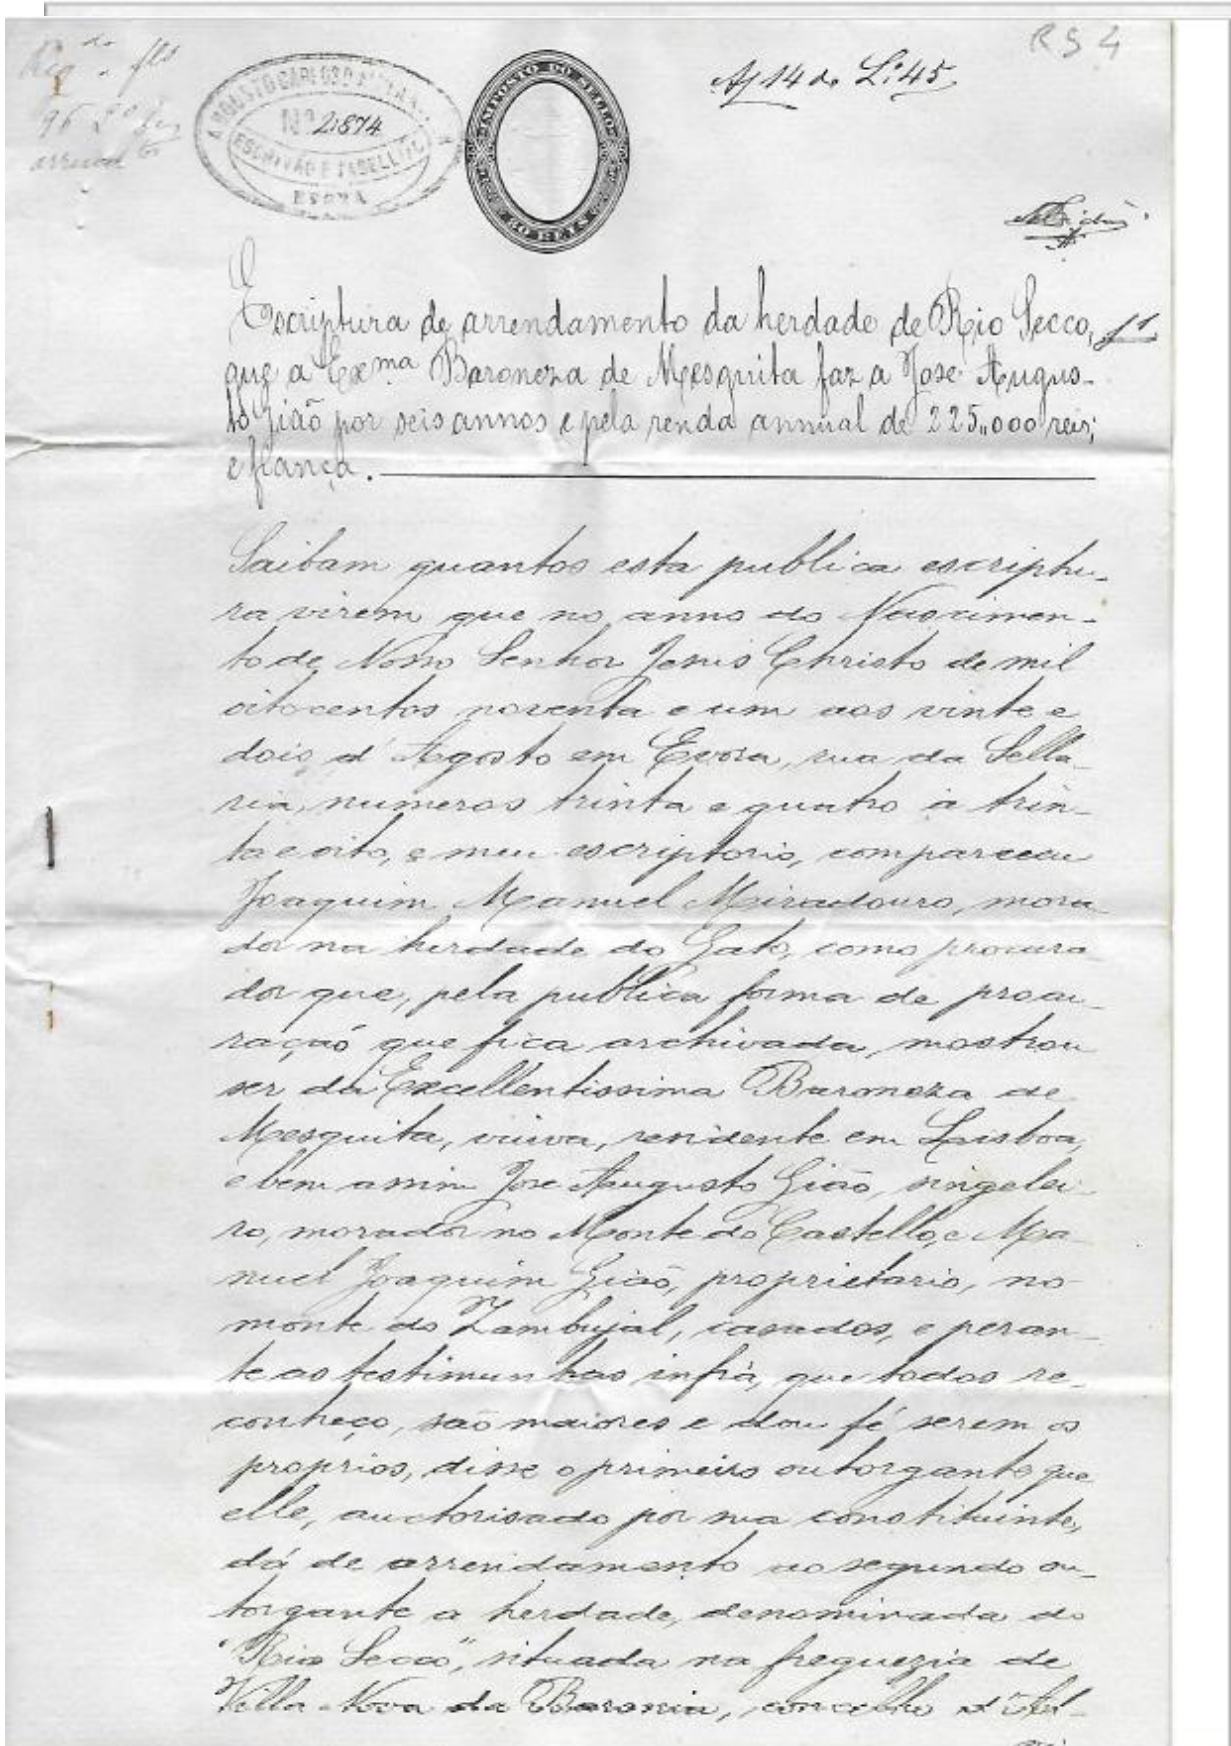 RS 4
Reg.do fls
96
Nº 21874
ESCRIVÃO E TABELLIÃO
EVORA
IMPOSTO DO SELLO
80 REIS
14 do L.º 45
Escriptura de arrendamento da herdade de Rio Secco,
que a Exma Baroneza de Mesquita faz a José Augus-
to Gião por seis annos e pela renda annual de 225,,000 reis;
e fiança.
Saibam quantos esta publica escriptu-
ra virem que no anno do Nascimen-
to de Nosso Senhor Jesus Christo de mil
oitocentos noventa e um aos vinte e
dois d'Agosto em Evora, rua da Sella-
ria, numeros trinta e quatro a trin-
ta e oito, e meu escriptorio, compareceu
Joaquim Manuel Miradouro, mora-
dor na herdade do Gato, como procura
dor que, pela publica forma de procu-
ração que fica archivada, mostrou
ser da Excellentissima Baroneza de
Mesquita, viuva, residente em Lisboa,
e bem assim José Augusto Gião, singelei-
ro, morador no Monte do Castello, e Ma-
nuel Joaquim Gião, proprietario, no
monte do Zambujal, casados, e peran-
te as testimunhas infrà, que todos re-
conheço, são maiores e dou fé serem os
proprios, disse o primeiro outorgante que
elle, auctorisado por sua constituinte,
dá de arrendamento ao segundo ou-
torgante a herdade, denominada do
"Rio Secco", situada na freguezia de
Villa Nova da Baronia, concelho d'Al-